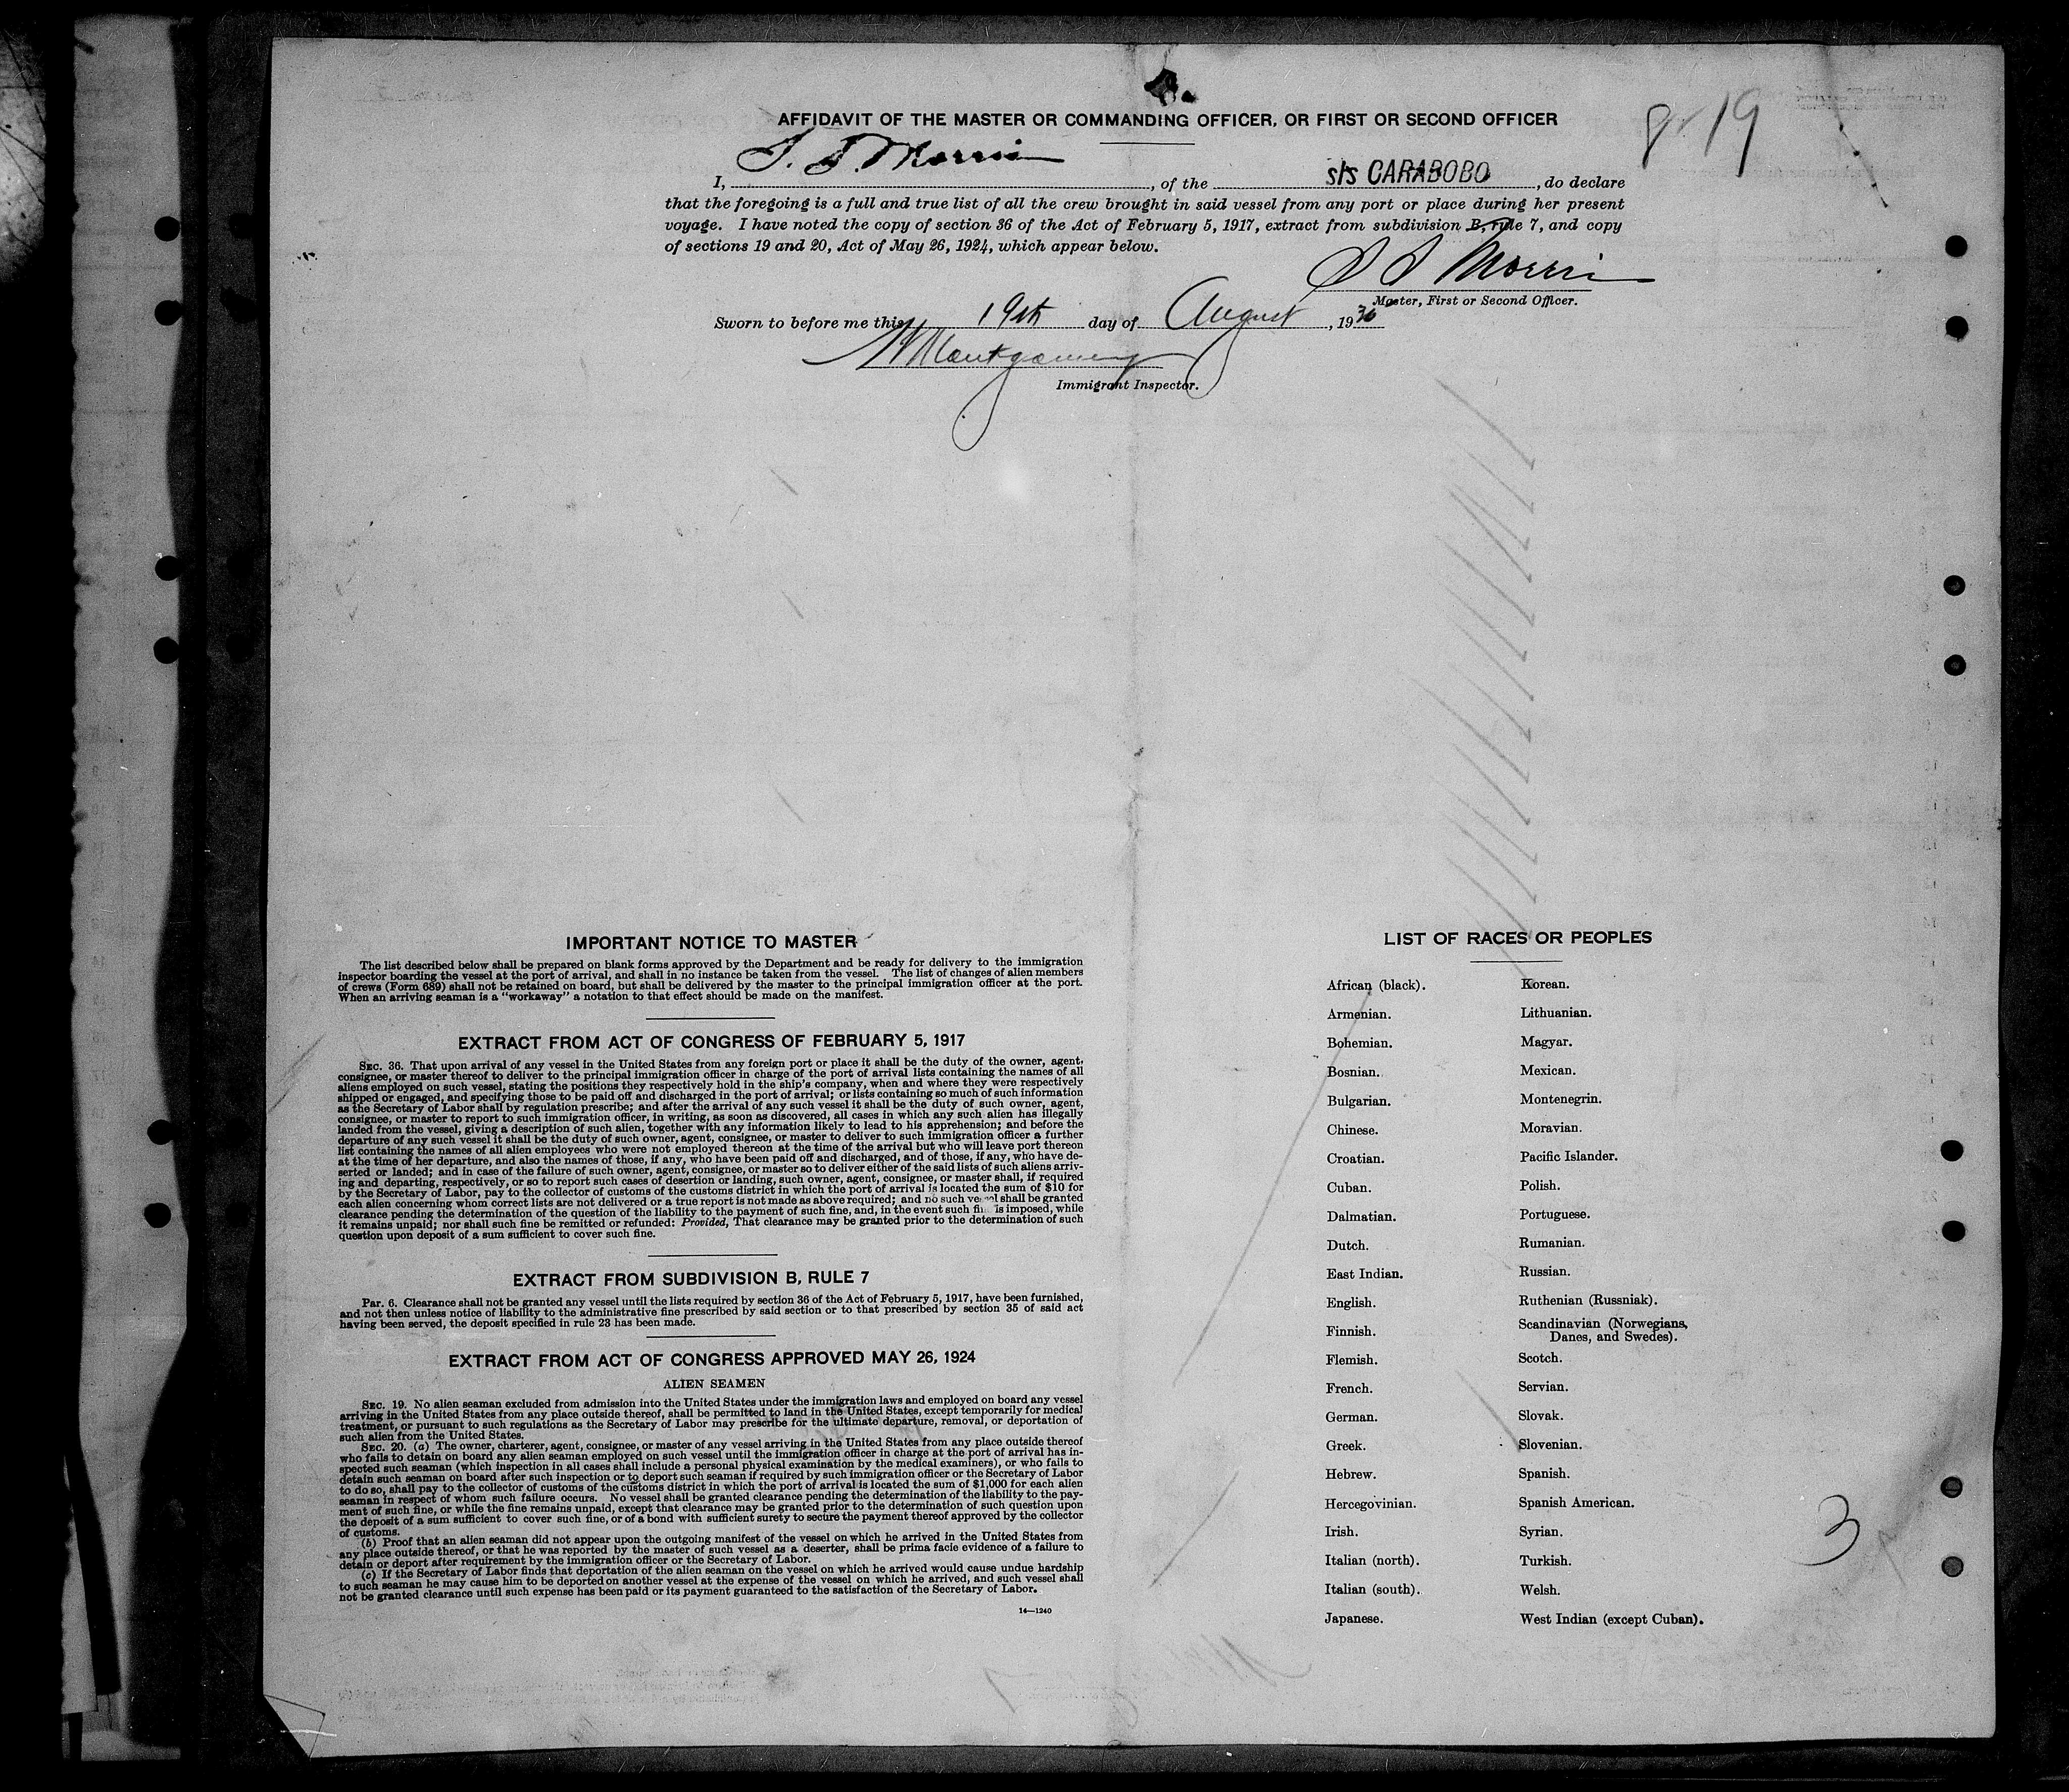 AFFIDAVIT OF THE MASTER OR COMMANDING OFFICER, OR FIRST OR SECOND OFFICER
19
I, Morris, of the s/s CARABOBO, do declare
that the foregoing is a full and true list of all the crew brought in said vessel from any port or place during her present
voyage. I have noted the copy of section 36 of the Act of February 5, 1917, extract from subdivision B, rule 7, and copy
of sections 19 and 20, Act of May 26, 1924, which appear below.
Morris
Master, First or Second Officer.
Sworn to before me this 19th day of August, 1930
Montgomery
Immigrant Inspector.
IMPORTANT NOTICE TO MASTER
The list described below shall be prepared on blank forms approved by the Department and be ready for delivery to the immigration
inspector boarding the vessel at the port of arrival, and shall in no instance be taken from the vessel. The list of changes of alien members
of crews (Form 689) shall not be retained on board, but shall be delivered by the master to the principal immigration officer at the port.
When an arriving seaman is a "workaway" a notation to that effect should be made on the manifest.
EXTRACT FROM ACT OF CONGRESS OF FEBRUARY 5, 1917
SEC. 36. That upon arrival of any vessel in the United States from any foreign port or place it shall be the duty of the owner, agent,
consignee, or master thereof to deliver to the principal immigration officer in charge of the port of arrival lists containing the names of all
aliens employed on such vessel, stating the positions they respectively hold in the ship's company, when and where they were respectively
shipped or engaged, and specifying those to be paid off and discharged in the port of arrival; or lists containing so much of such information
as the Secretary of Labor shall by regulation prescribe; and after the arrival of any such vessel it shall be the duty of such owner, agent,
consignee, or master to report to such immigration officer, in writing, as soon as discovered, all cases in which any such alien has illegally
landed from the vessel, giving a description of such alien, together with any information likely to lead to his apprehension; and before the
departure of any such vessel it shall be the duty of such owner, agent, consignee, or master to deliver to such immigration officer a further
list containing the names of all alien employees who were not employed thereon at the time of the arrival but who will leave port thereon
at the time of her departure, and also the names of those, if any, who have been paid off and discharged, and of those, if any, who have de-
serted or landed; and in case of the failure of such owner, agent, consignee, or master so to deliver either of the said lists of such aliens arriv-
ing and departing, respectively, or so to report such cases of desertion or landing, such owner, agent, consignee, or master shall, if required
by the Secretary of Labor, pay to the collector of customs of the customs district in which the port of arrival is located the sum of $10 for
each alien concerning whom correct lists are not delivered or a true report is not made as above required; and no such vessel shall be granted
clearance pending the determination of the question of the liability to the payment of such fine, and, in the event such fine is imposed, while
it remains unpaid; nor shall such fine be remitted or refunded: Provided, That clearance may be granted prior to the determination of such
question upon deposit of a sum sufficient to cover such fine.
EXTRACT FROM SUBDIVISION B, RULE 7
Par. 6. Clearance shall not be granted any vessel until the lists required by section 36 of the Act of February 5, 1917, have been furnished,
and not then unless notice of liability to the administrative fine prescribed by said section or to that prescribed by section 35 of said act
having been served, the deposit specified in rule 23 has been made.
EXTRACT FROM ACT OF CONGRESS APPROVED MAY 26, 1924
ALIEN SEAMEN
SEC. 19. No alien seaman excluded from admission into the United States under the immigration laws and employed on board any vessel
arriving in the United States from any place outside thereof, shall be permitted to land in the United States, except temporarily for medical
treatment, or pursuant to such regulations as the Secretary of Labor may prescribe for the ultimate departure, removal, or deportation of
such alien from the United States.
SEC. 20. (a) The owner, charterer, agent, consignee, or master of any vessel arriving in the United States from any place outside thereof
who fails to detain on board any alien seaman employed on such vessel until the immigration officer in charge at the port of arrival has in-
spected such seaman (which inspection in all cases shall include a personal physical examination by the medical examiners), or who fails to
detain such seaman on board after such inspection or to deport such seaman if required by such immigration officer or the Secretary of Labor
to do so, shall pay to the collector of customs of the customs district in which the port of arrival is located the sum of $1,000 for each alien
seaman in respect of whom such failure occurs. No vessel shall be granted clearance pending the determination of the liability to the pay-
ment of such fine, or while the fine remains unpaid, except that clearance may be granted prior to the determination of such question upon
the deposit of a sum sufficient to cover such fine, or of a bond with sufficient surety to secure the payment thereof approved by the collector
of customs.
(b) Proof that an alien seaman did not appear upon the outgoing manifest of the vessel on which he arrived in the United States from
any place outside thereof, or that he was reported by the master of such vessel as a deserter, shall be prima facie evidence of a failure to
detain or deport after requirement by the immigration officer or the Secretary of Labor.
(c) If the Secretary of Labor finds that deportation of the alien seaman on the vessel on which he arrived would cause undue hardship
to such seaman he may cause him to be deported on another vessel at the expense of the vessel on which he arrived, and such vessel shall
not be granted clearance until such expense has been paid or its payment guaranteed to the satisfaction of the Secretary of Labor.
14—1240
LIST OF RACES OR PEOPLES
African (black).
Armenian.
Bohemian.
Bosnian.
Bulgarian.
Chinese.
Croatian.
Cuban.
Dalmatian.
Dutch.
East Indian.
English.
Finnish.
Flemish.
French.
German.
Greek.
Hebrew.
Hercegovinian.
Irish.
Italian (north).
Italian (south).
Japanese.
Korean.
Lithuanian.
Magyar.
Mexican.
Montenegrin.
Moravian.
Pacific Islander.
Polish.
Portuguese.
Rumanian.
Russian.
Ruthenian (Russniak).
Scandinavian (Norwegians,
Danes, and Swedes).
Scotch.
Servian.
Slovak.
Slovenian.
Spanish.
Spanish American.
Syrian.
Turkish.
Welsh.
West Indian (except Cuban).
3